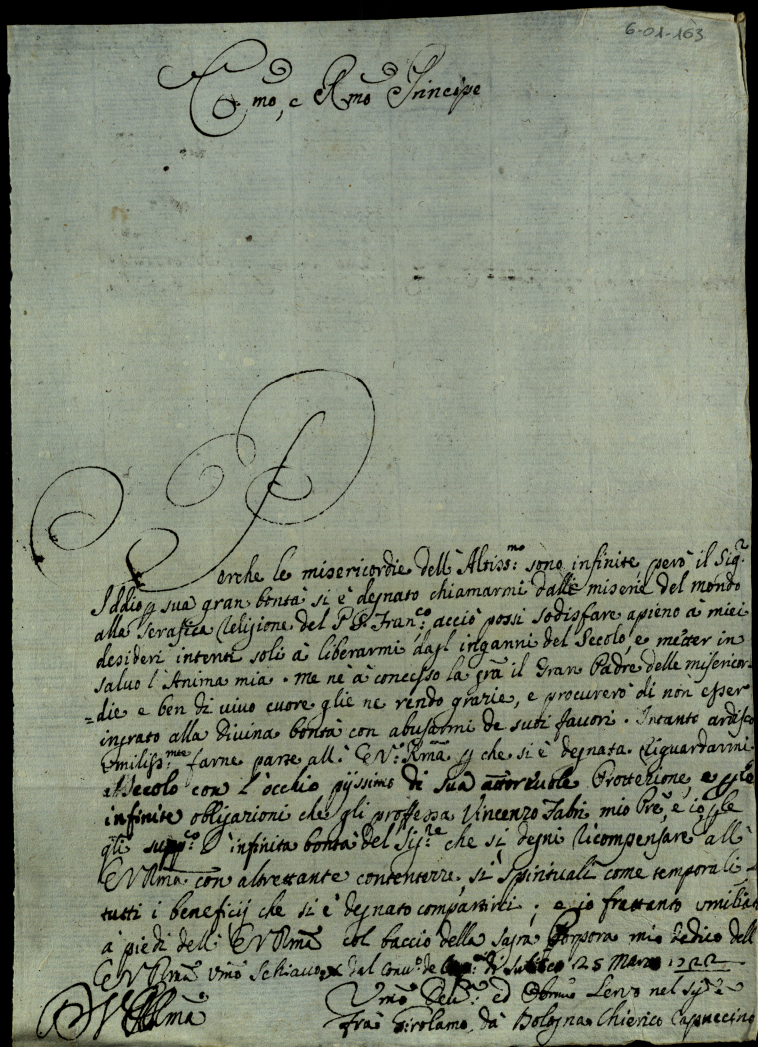 6-01-163
E.mo, e R.mo Principe
Perche le misericordie dell'Altiss.mo sono infinite però il Sig.r
Iddio p sua gran bontà si è degnato chiamarmi dalle miserie del mondo
alla Serafica Religione del P. S. Fran.co acciò possi sodisfare apieno à miei
desideri intenti soli à liberarmi dagl'inganni del Secolo, e metter in
salvo l'Anima mia. Me nè à concesso la grã il Gran Padre delle misericor
=die e ben di vivo cuore glie ne rendo grazie, e procurerò di non esser
ingrato alla divina bontà con abusarmi de suoi favori. Intanto ardisco
umiliss.mte farne parte all' E V. Rmã p che si è degnata riguardarmi
al Secolo con l'occhio pijssimo di sua autorevole Protezione, e p le
infinite obligazioni che gli proffessa Vincenzo Fabri mio Prẽ, e io
gli supp.co l'infinita bontà del Sig.re che si degni ricompensare all'
E V Rmã con altrettante contentezze, sì Spirituali come temporali
tutti i beneficij che si è degnato compartirci; e io frattanto umiliato
à piedi dell' E V Rmã col baccio della sagra Porpora mio dedico dell'
E V Rmã Umo Schiavo dal Conv.o de Capp.ni di 25 Marzo 1722
Umo Dev.o ed Obmo Servo nel Sig.re
V E Rmã
Frà Girolamo da Bologna Chierico Cappuccino